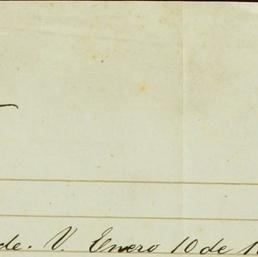 de. V. Enero 10 de 1